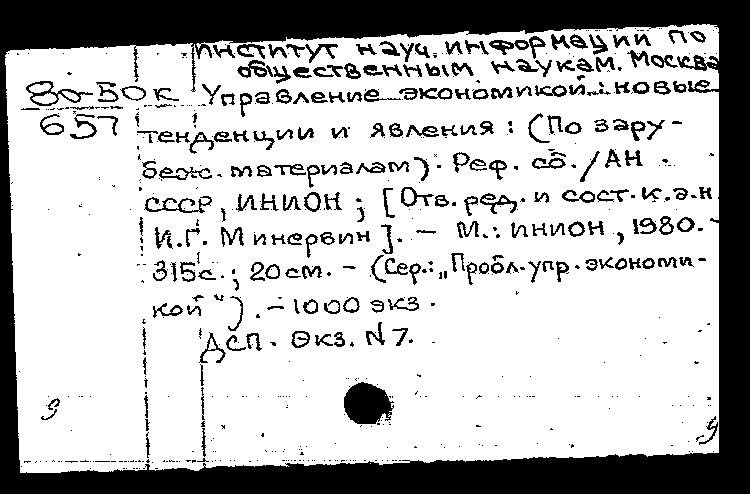 институт науч. информации по
общественным наукам. Москва
80-БОК Управление экономикой: новые
657 тенденции и явления: (По зару-
беж. материалам). Реф. сб. / АН
СССР, ИНИОН; [Отв. ред. и сост. к.э.н.
И.Г. Минервин]. - М.: ИНИОН, 1980. -
315с.; 20см. - (Сер.: „Пробл. упр. экономи-
кой"). - 1000 экз.
ДСП. Экз. N 7.